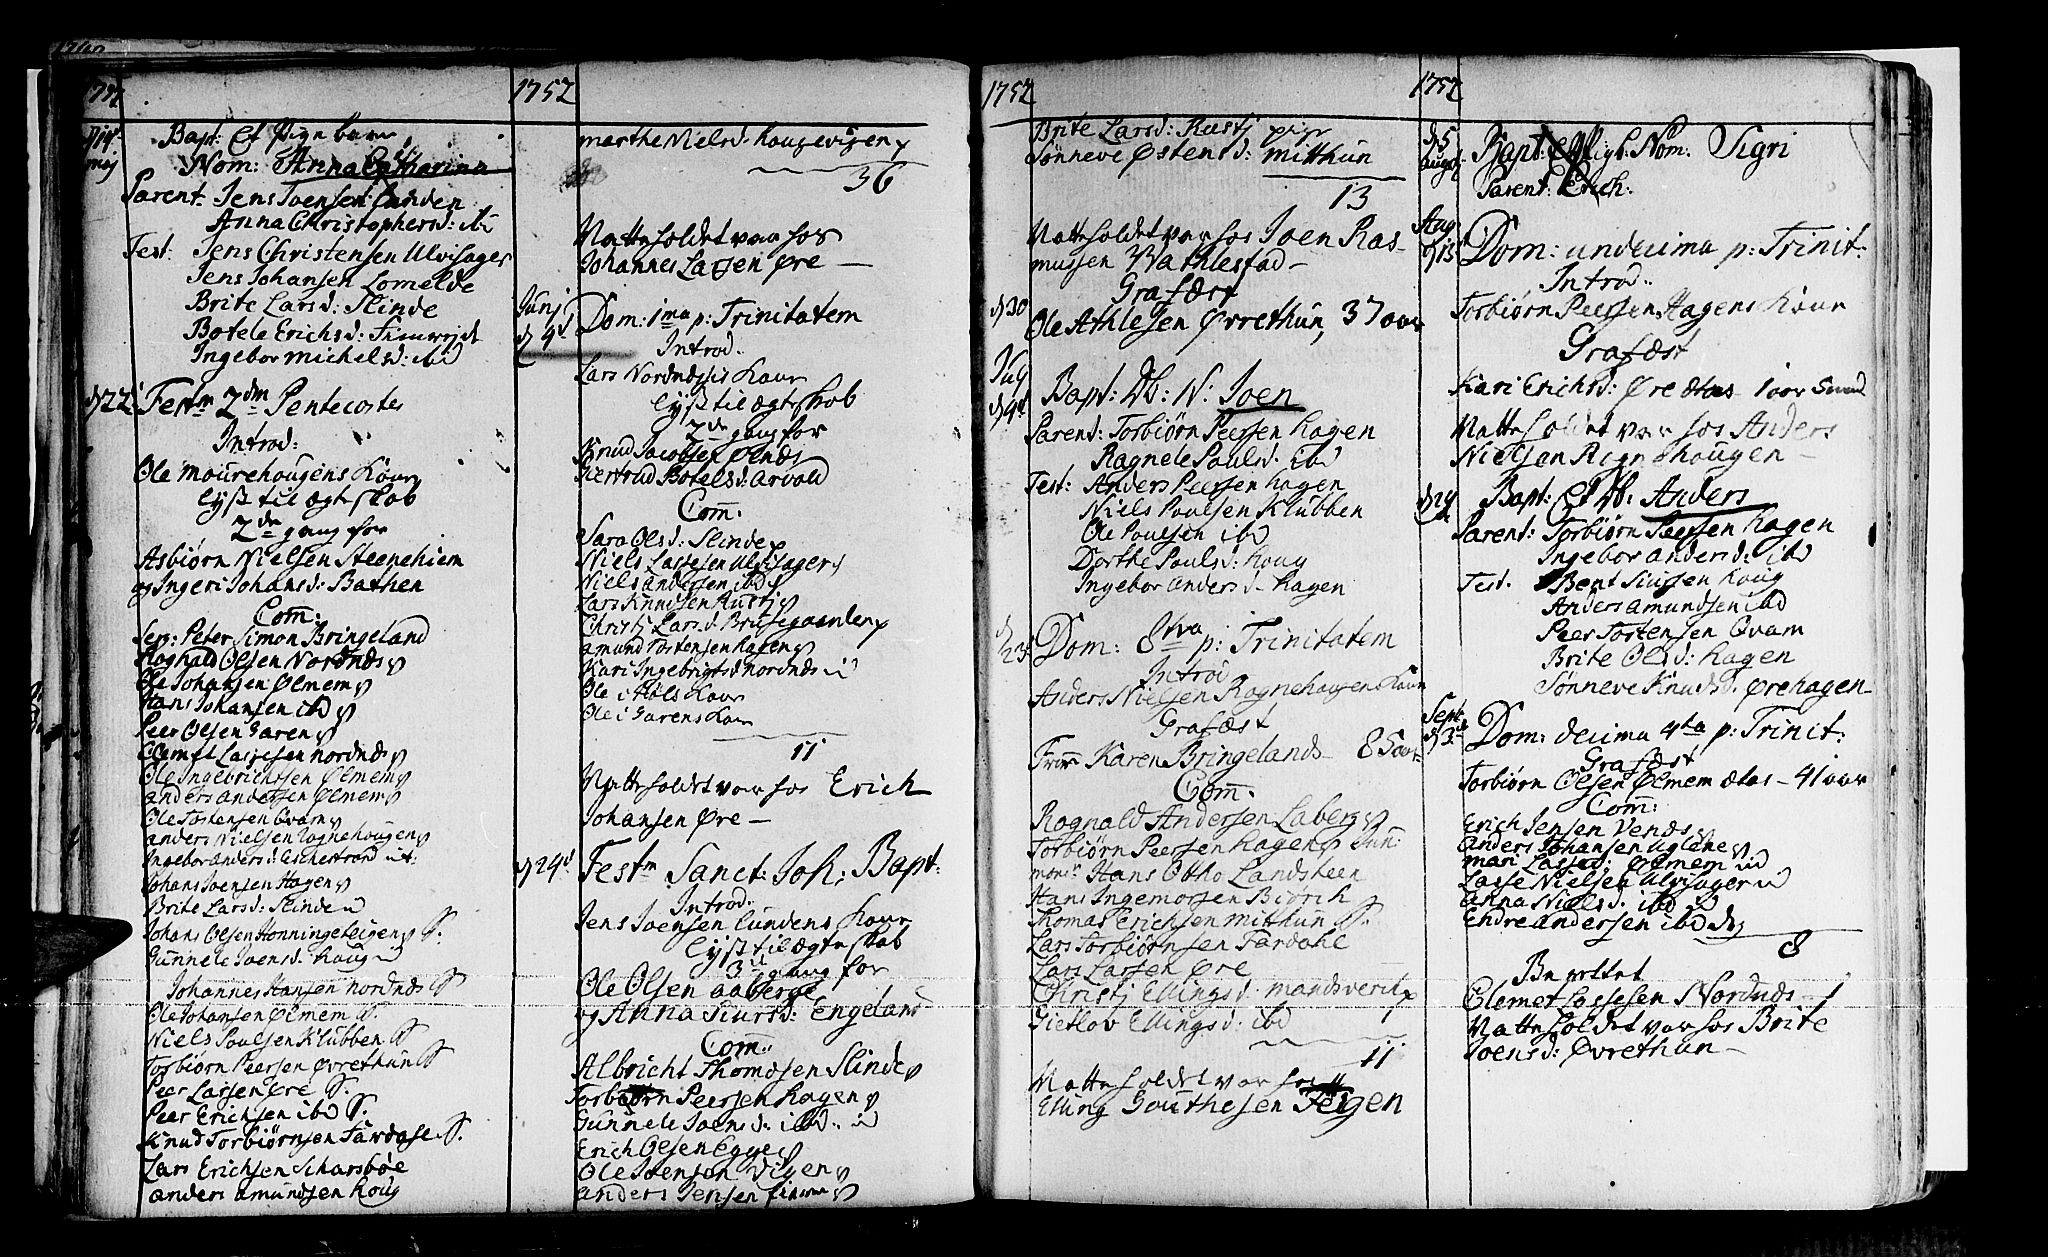 1752
Bapt: Et Pige barn
Nom: Anna Catharina
Parent. Jens Joensen Lunden
Anna Christophersd: ibd
Test: Jens Christensen Ulvisager
Jens Johansen Lomelde
Brite Larsd: Slinde
Botele Erichsd:
Ingebor Michelsd: ibd
d 22 Festm 2dm Pentecostes
Introd:
Ole Mourehougens Kone
Lyst til ægteskab
2de gang for
Asbiørn Nielsen Steenehiem
og Ingeri Johansd: Bathen
Com:
Sepr: Peter Simon Bringeland
Rognald Olsen Nordnæs
Ole Johansen Ølmem
Hans Johansen ibd
Peer Olsen Garen
Clemet Lassesen Nordnæs
Ole Ingebrichtsen Ølmem
Anders Andersen Ølmem
Ole Tostensen Qvam
Anders Nielsen Rognehougen
Ingebor Andersd: Eschestrand
Johans Joensen Hagen
Brite Larsd: Slinde
Johans Olsen Honningeteigen S.
Gunnele Joensd: Houg
Johannes Hansen Nordnæs S
Ole Johansen Ølmem S.
Niels Poulsen Klubben S
Torbiørn Peersen Øvrethun S
Peer Lassen Øre S.
Peer Erichsen ibd S.
Knud Torbiørnsen Fardale S.
Lars Erichsen Scharsbøe
Anders Amundsen Houg
1752
Marthe Nielsd. Haugevigen
36
Natte holdet var hos
Johannes Larsen Øre
Junj
d 4d Dom: 1ma p: Trinitatem
Introd.
Lars Nordnæsis Kone
Lyst til ægteskab
2de gang for
Knud Jacobsen Ølnæs
Giertrud Botelsd: Arvold
Com.
Sara Olsd: Slinde
Niels Lassesen Ulvisager
Niels Andersen ibd
Lars Knudsen Rustj
Christj Larsd. Brusegaarden
Amund Tostensen Hagen
Kari Ingebrigtsd Nordnæs
Ole i Hols Kone
Ole i Garens Kone
11
Natte holdet var hos Erich
Johansen Øre
d 24d Festm Sanct: Joh: Bapt:
Introd.
Jens Joensen Lundens Kone
Lyst til ægteskab
3d gang for
Ole Olsen Aaberge
og Anna Siursd: Engeland
Com:
Albricht Thomøsen Slinde
Torbiørn Peersen Hagen
Gunnele Joensd: ibd.
Erich Olsen Egge
Ole Joensøn Vigen
Anders Jensen
1752
Brite Larsd: Rustj pige
Sønneve Østensd: Mitthun
13
Natte holdet var hos Joen Ras-
mussen Vathlestad
d 30 Grafæst
Ole Athlesen Øvrethun, 37 aar
July
d 9d Bapt: Db: N: Joen
Parent: Torbiørn Peersen Hagen
Ragnele Poulsd. ibd
Test: Anders Peersen Hagen
Niels Poulsen Klubben
Ole Poulsen ibd
Dorthe Poulsd: Houg
Ingebor Andersd. Hagen
d 23 Dom: 8tva p: Trinitatem
Introd
Anders Nielsen Rognehougens Kone
Grafæst
Karen Bringelands 85 aar
Com.
Rognald Andersen Laberg
Torbiørn Peersen Hagen
Hans Otho Landskeen
Hans Ingemorsen Biørih
Thomas Erichsen Mitthun S.
Lars Torbiørnsen Fardahl
Lars Larsen Øre
Christj Ellingsd: Mandsverk
Gietlov Ellingsd: ibd
11
Natte holdet var hos
Elling Gouthesen Teigen
1752
d 5 Aug. Bapt: Nom. Sigri
Parent: Erich.
Aug
d 13 Dom: undecima p: Trinit:
Introd:
Torbiørn Peersen Hagens Kone
Grafæst
Kari Erichsd: Øre ætas 1 aar
Natte holdet var hos Anders
Nielsen Rognehougen
Bapt: Et Db: Anders
Parent: Torbiørn Peersen Hagen
Ingebor Andersd: ibd
Test. Bent Siursen Houg
Anders Amundsen ibd
Peer Tostensen Qvam
Brite Olsd: Hagen
Sønneve Knudsd. Ørehagen
Sept.
d 3d Dom: decima 4ta p: Trinit:
Grafæst
Torbiørn Olsen Ølmem ætas 41 aar
Com:
Erich Jensen Venæs
Anders Johansen Uglane
Mari Lassd: Ølmem
Lasse Nielsen Ulvisager
Anna Nielsd. ibd
Endre Andersen ibd
8
Berettet
Clemet Lassesen Nordnæs 1
Natte holdet var hos Brite
Joensd: Øvrethun